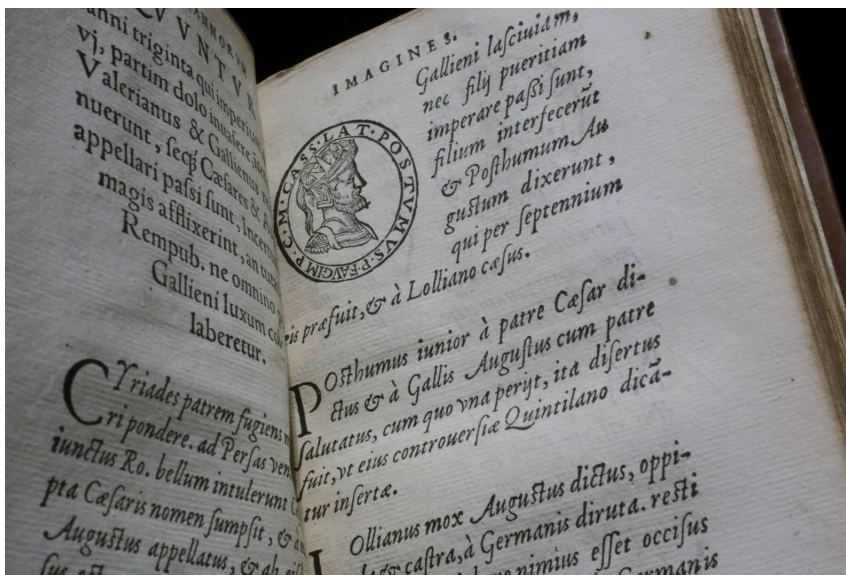 ANNORVM
CVVNTVR
anni triginta qui imperium
vj, partim dolo inuasere,
Valerianus & Gallienus
nuerunt, seq́ꝫ Cæsares &
appellari passi sunt, Incer
magis afflixerint, an
Rempub. ne omnino
Gallieni luxum
laberetur.
CYriades patrem fugiens
ri pondere. ad Persas ven
iunctus Ro. bellum intulerunt
pta Cæsaris nomen sumpsit, & à
Augustus appellatus, & ab
sus est
IMAGINES.
Gallieni lasciuiam,
nec filij pueritiam
imperare paßi ſunt,
filium interfecerũt
& Posthumum Au
gustum dixerunt,
qui per ſeptennium
eis præfuit, & à Lolliano cæſus.
IMP. C. M. CASS. LAT. POSTVMVS. P. F. AVG
POsthumus iunior à patre Cæſar di-
ctus & à Gallis Augustus cum patre
ſalutatus, cum quo vna perijt, ita diſertus
fuit, vt eius controuerſiæ Quintilano dicã-
tur inſertæ.
OLlianus mox Augustus dictus, oppi-
& castra, à Germanis diruta. resti
nimius eſſet occiſus
à Germanis